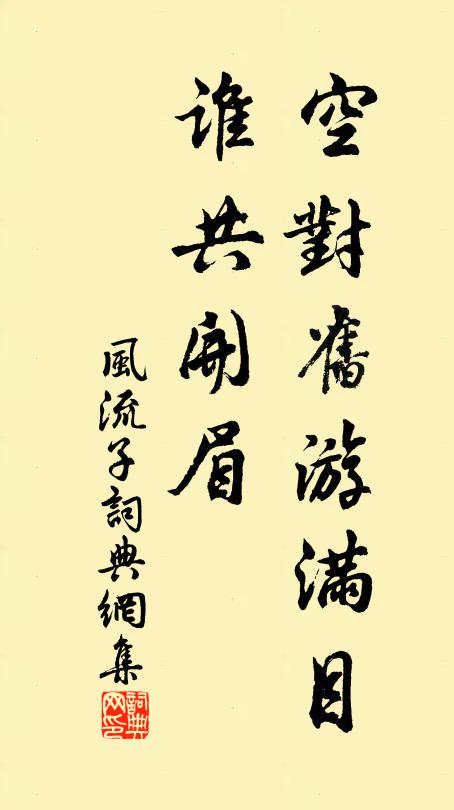 空對舊游滿目
誰共開眉
風流子詞典網集
詞典网印